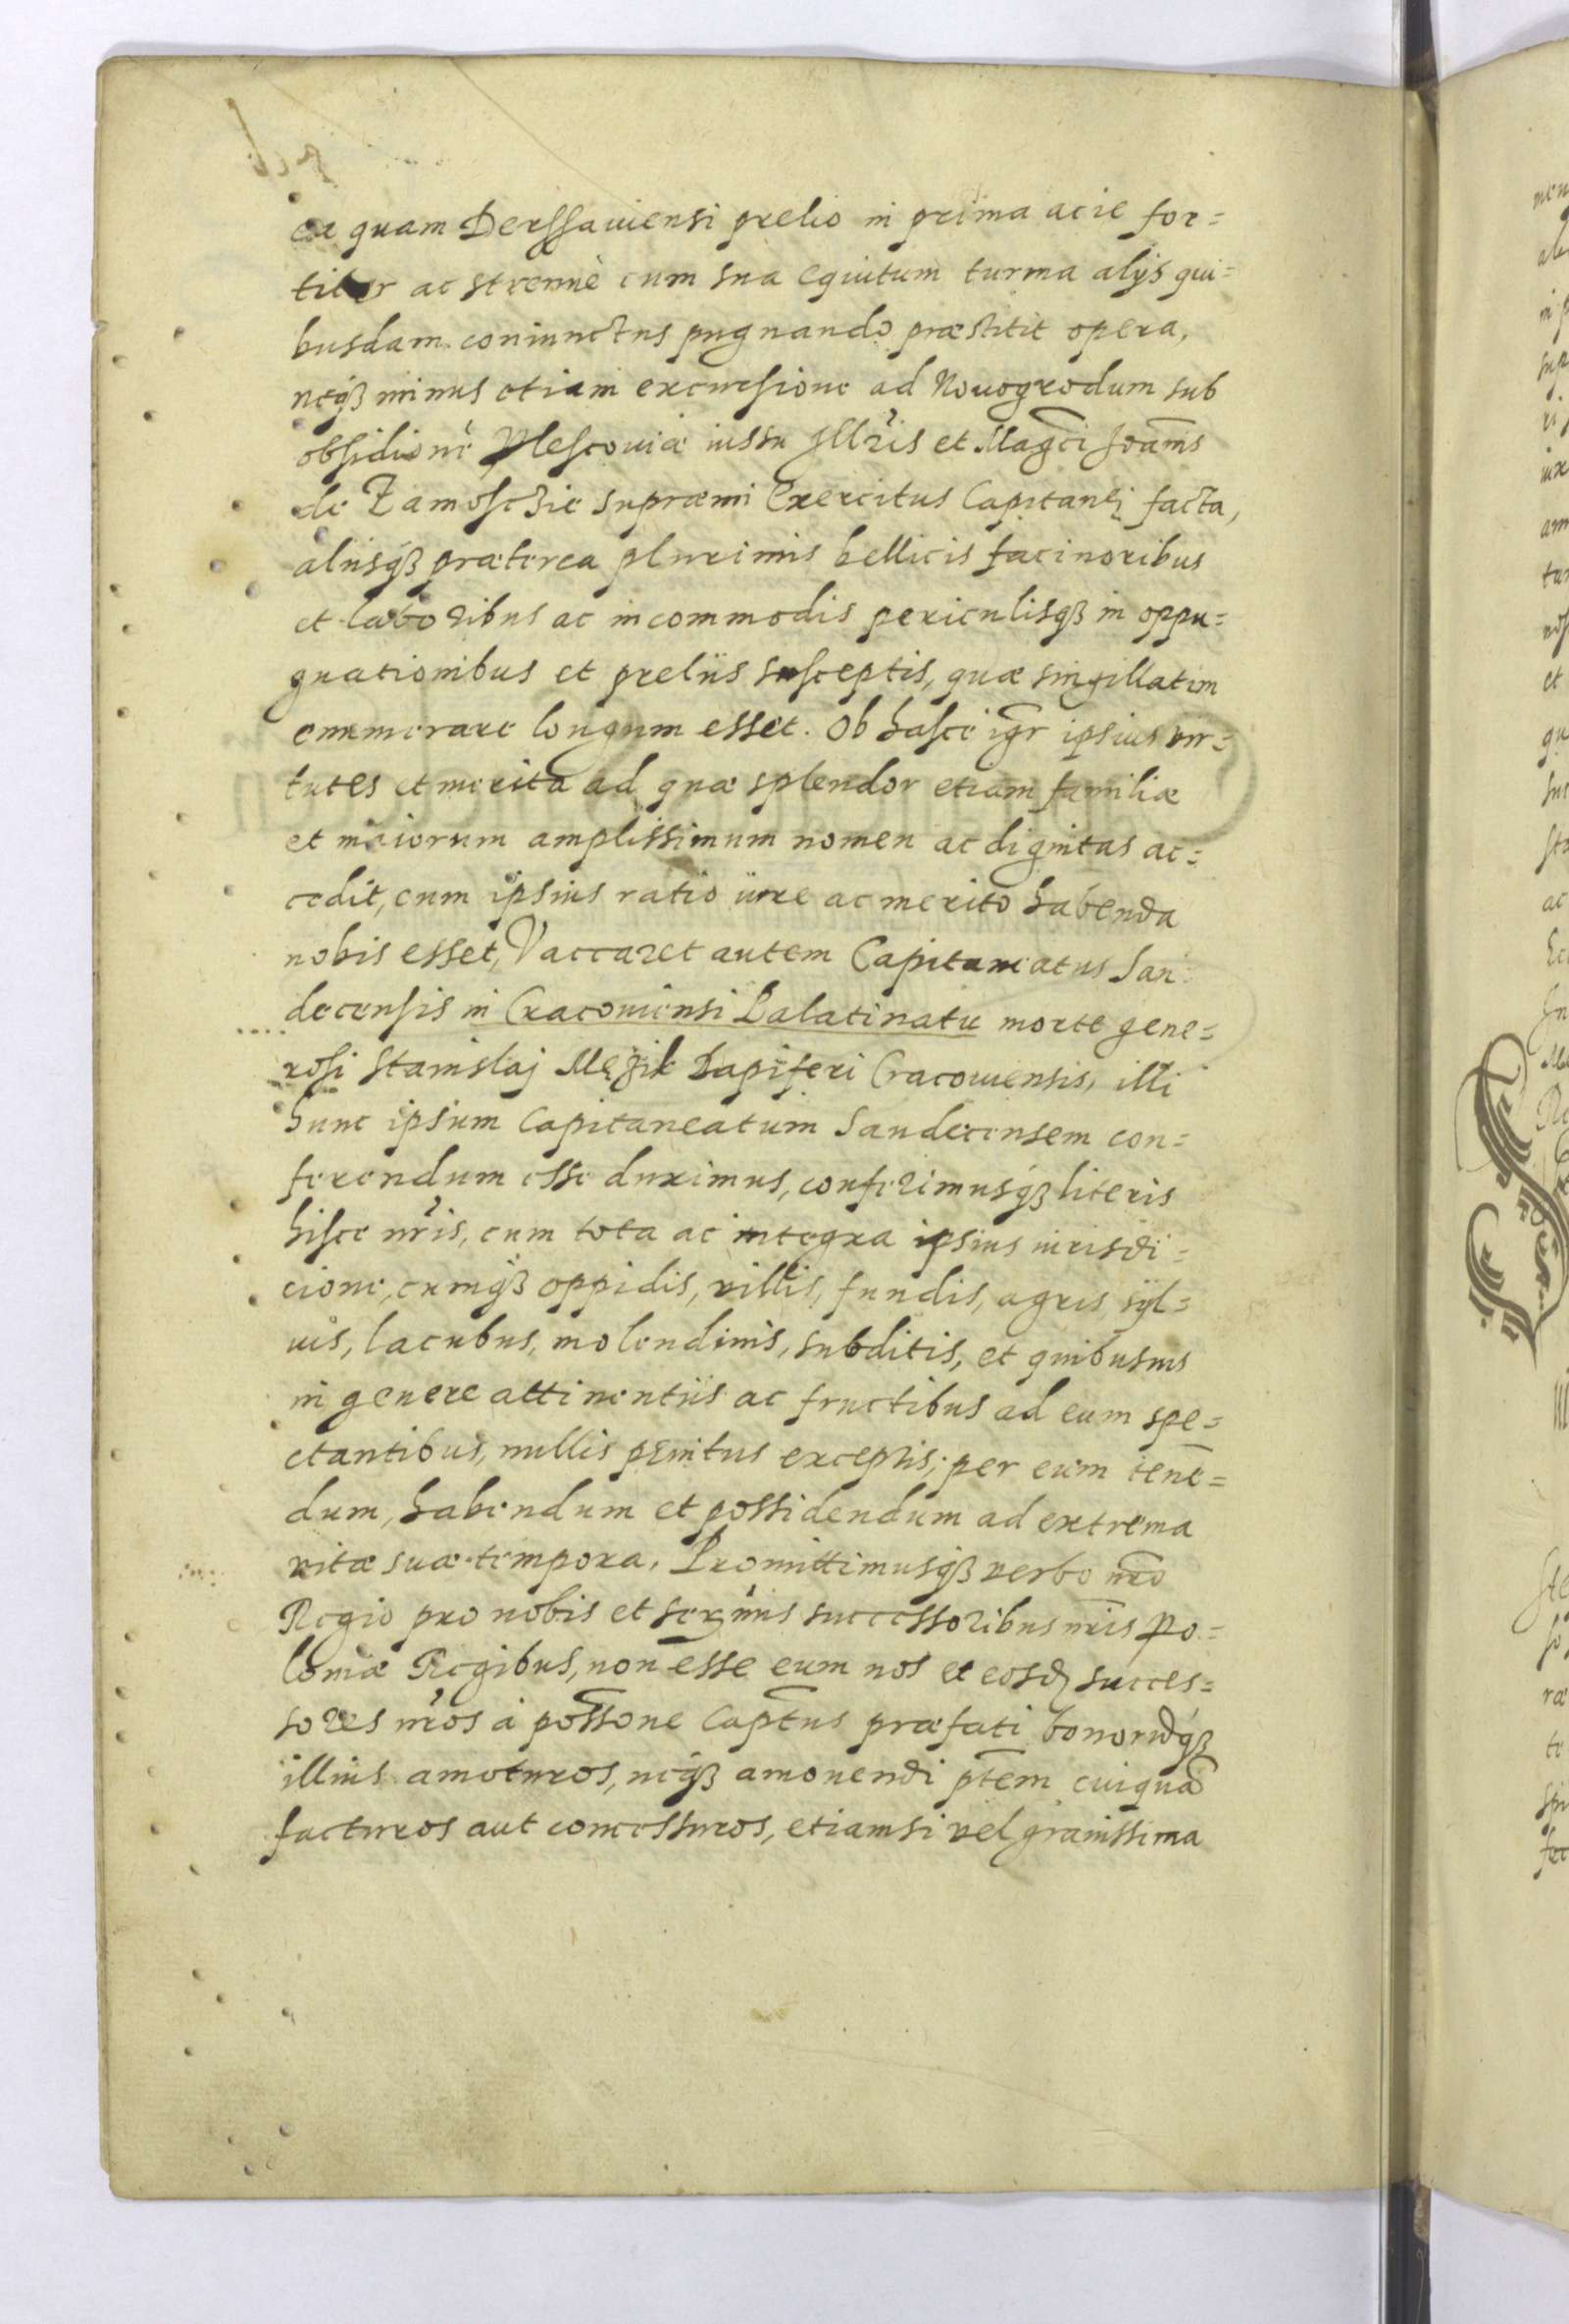 ea quam Derssauiensi prelio in prima acie for=
titer ac strennè cum sua equitum turma alijs qui=
busdam coniunctus pugnando præstitit opera,
neqȝ minus etiam excursione ad Nouogrodum sub
obsidione Plescouiæ iussu Jllr̃is et Magc̃i Joañis
de Zamosczie supræmi Exercitus Capitanei facta,
alijsqȝ præterea plurimis bellicis facinoribus
et laboribus ac incommodis periculisqȝ in oppu=
gnationibus et preliis susceptis, quæ singillatim
enumerare longum esset. Ob hasce igr̃ ipsius vir=
tutes et merita ad quæ splendor etiam familiæ
et maiorum amplissimum nomen ac dignitas ac=
cedit, cum ipsius ratio iure ac merito habenda
nobis esset, Vaccaret autem Capitaneatus San=
decensis in Cracouiensi Palatinatu morte gene=
rosi Stanislaj Mężik Dapiferi Cracouiensis, illi
hunc ipsum Capitaneatum Sandecensem con=
ferendum esse duximus, conferimusqȝ literis
hisce nr̃is, cum tota ac integra ipsius iurisdi=
cione, cumqȝ oppidis, villis, fundis, agris sÿl=
uis, lacubus, molendinis, subditis, et quibusuis
in genere attinentiis ac fructibus ad eum spe=
ctantibus, nullis penitus exceptis; per eum tenẽ=
dum, habendum et possidendum ad extrema
vitæ suæ tempora. Promittimusqȝ verbo nr̃o
Regio pro nobis et serm̃is successoribus nr̃is Po=
loniæ Regibus, non esse eum nos et eosd̃ succes=
sores nr̃os à posśone Captũs præfati bonorũqȝ
illius amoturos, neqȝ amouendi ptẽm cuiquã
facturos aut concessuros, etiamsi vel grauissima